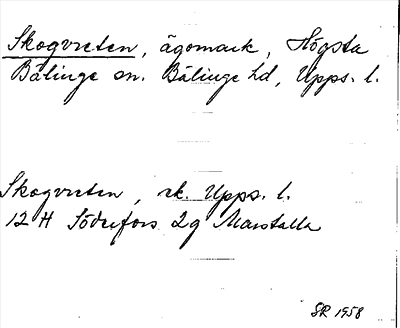 Skogvreten, ägomark, Högsta
Bälinge sn. Bälinge hd, Upps. l.
Skogvreten, rk. Upps. l.
12 H Söderfors 2g Marstalla
SR 1958